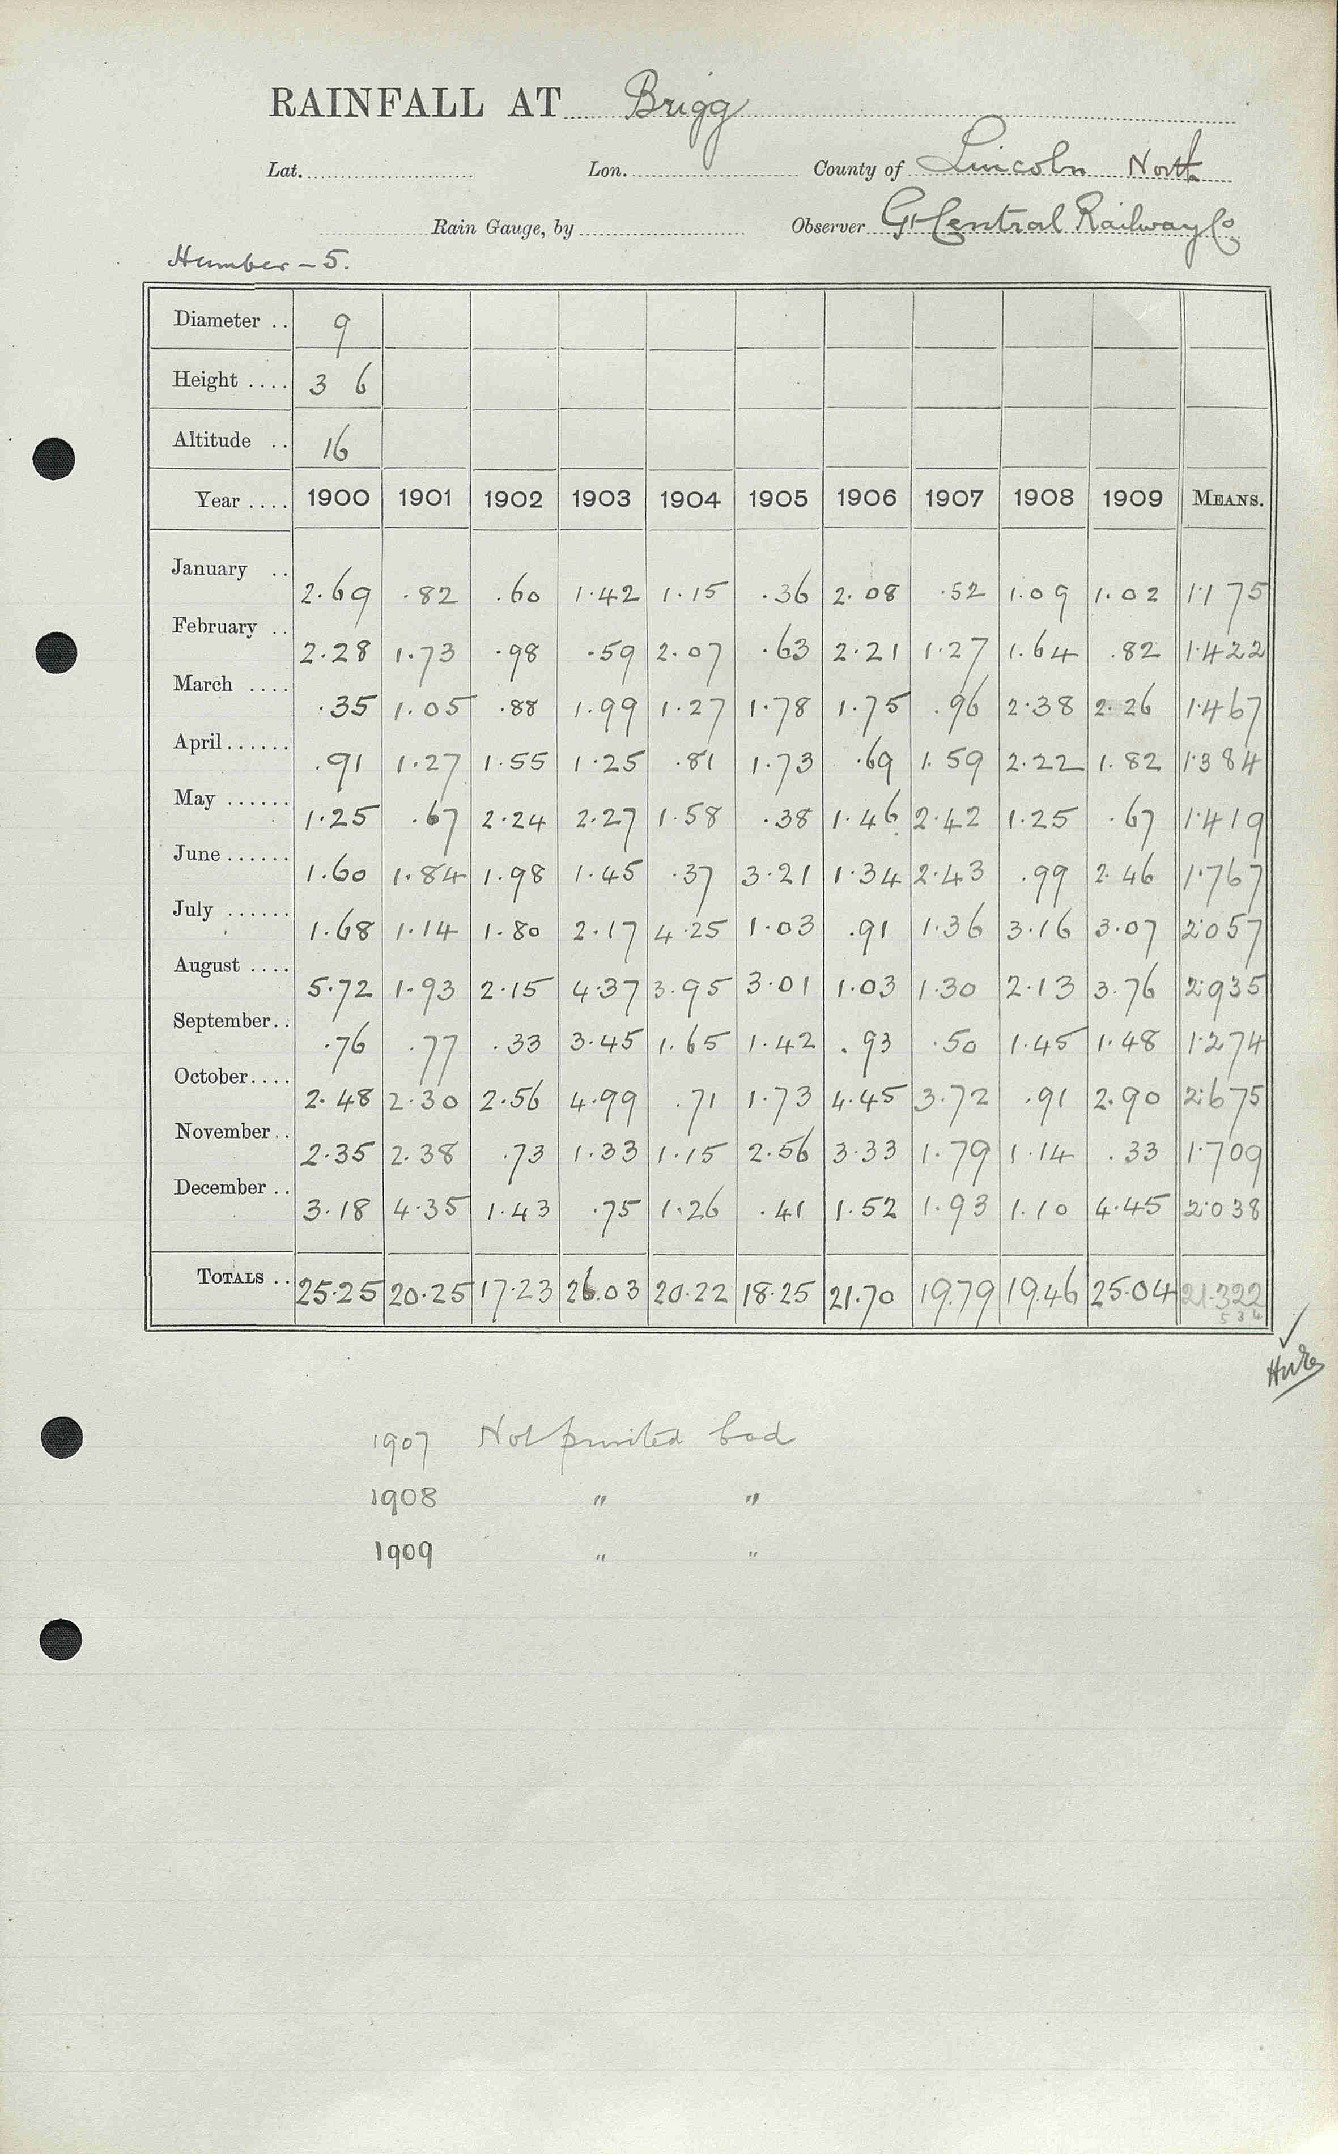 RAINFALL AT Brigg
Lat. Lon. County of Lincoln North
Rain Gauge, by Observer Gt Central Railway Co
Humber - 5.
Diameter .. 9
Height .... 3 6
Altitude .. 16
Year .... 1900 1901 1902 1903 1904 1905 1906 1907 1908 1909 MEANS.
January .. 2.69 .82 .60 1.42 1.15 .36 2.08 .52 1.09 1.02 1.175
February .. 2.28 1.73 .98 .59 2.07 .63 2.21 1.27 1.64 .82 1.422
March .... .35 1.05 .88 1.99 1.27 1.78 1.75 .96 2.38 2.26 1.467
April...... .91 1.27 1.55 1.25 .81 1.73 .69 1.59 2.22 1.82 1.384
May ...... 1.25 .67 2.24 2.27 1.58 .38 1.46 2.42 1.25 .67 1.419
June ...... 1.60 1.84 1.98 1.45 .37 3.21 1.34 2.43 .99 2.46 1.767
July ...... 1.68 1.14 1.80 2.17 4.25 1.03 .91 1.36 3.16 3.07 2.057
August .... 5.72 1.93 2.15 4.37 3.95 3.01 1.03 1.30 2.13 3.76 2.935
September.. .76 .77 .33 3.45 1.65 1.42 .93 .50 1.45 1.48 1.274
October.... 2.48 2.30 2.56 4.99 .71 1.73 4.45 3.72 .91 2.90 2.675
November.. 2.35 2.38 .73 1.33 1.15 2.56 3.33 1.79 1.14 .33 1.709
December .. 3.18 4.35 1.43 .75 1.26 .41 1.52 1.93 1.10 4.45 2.038
TOTALS .. 25.25 20.25 17.23 26.03 20.22 18.25 21.70 19.79 19.46 25.04 21.322
534
1907 Not printed bad
1908 " "
1909 " "